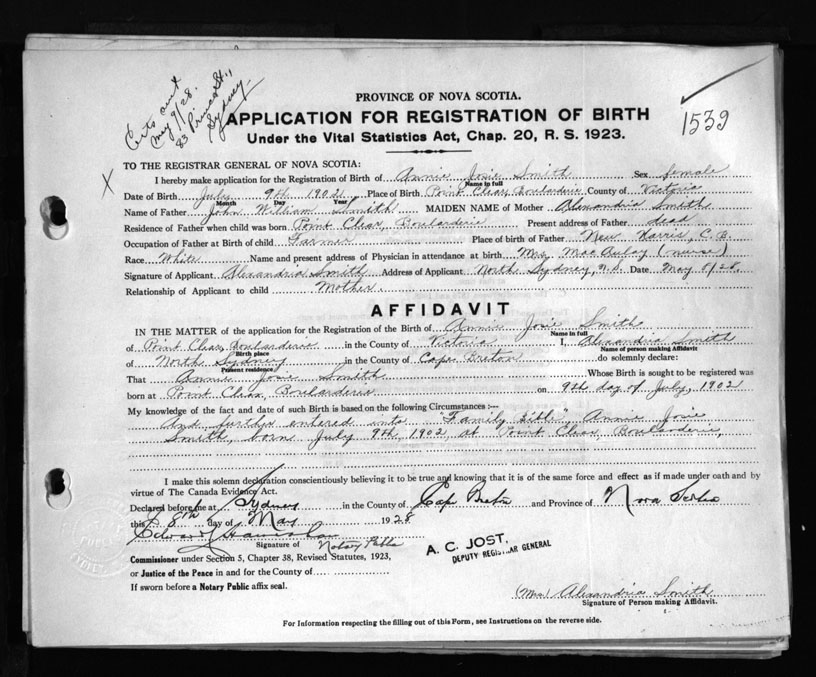 Certs out
May 9/28.
83 Prince St.,
Sydney.
1539
PROVINCE OF NOVA SCOTIA.
APPLICATION FOR REGISTRATION OF BIRTH
Under the Vital Statistics Act, Chap. 20, R. S. 1923.
TO THE REGISTRAR GENERAL OF NOVA SCOTIA:
X
I hereby make application for the Registration of Birth of Annie Josie Smith Sex female
Name in full
Date of Birth July 9th 1902 Place of Birth Point Clear, Boularderie County of Victoria
Month Day Year
Name of Father John William Smith MAIDEN NAME of Mother Alexandria Smith
Residence of Father when child was born Point Clear, Boularderie Present address of Father dead
Occupation of Father at Birth of child Farmer Place of birth of Father New Harris, C. B.
Race White Name and present address of Physician in attendance at birth Mrs. MacAulay (nurse)
Signature of Applicant Alexandria Smith Address of Applicant North Sydney, N.S. Date May 8/28.
Relationship of Applicant to child Mother.
AFFIDAVIT
IN THE MATTER of the application for the Registration of the Birth of Annie Josie Smith
Name in full
of Point Clear, Boularderie in the County of Victoria I, Alexandria Smith
Birth place Name of person making Affidavit
of North Sydney in the County of Cape Breton do solemnly declare:
Present residence
That Annie Josie Smith Whose Birth is sought to be registered was
born at Point Clear, Boularderie on 9th day of July, 1902
My knowledge of the fact and date of such Birth is based on the following Circumstances :—
And further entered into "Family Bible" Annie Josie
Smith, born July 9th, 1902 at Point Clear Boularderie,
I make this solemn declaration conscientiously believing it to be true and knowing that it is of the same force and effect as if made under oath and by
virtue of The Canada Evidence Act.
Declared before me at Sydney in the County of Cape Breton and Province of Nova Scotia
this 8th day of May 1928
Edward
Signature of Notary Public
A. C. JOST,
DEPUTY REGISTRAR GENERAL
Commissioner under Section 5, Chapter 38, Revised Statutes, 1923,
or Justice of the Peace in and for the County of
If sworn before a Notary Public affix seal.
(Mrs) Alexandria Smith
Signature of Person making Affidavit.
For Information respecting the filling out of this Form, see Instructions on the reverse side.